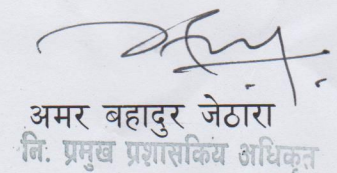 अमर बहादुर जेठारा
नि. प्रमुख प्रशासकिय अधिकृत